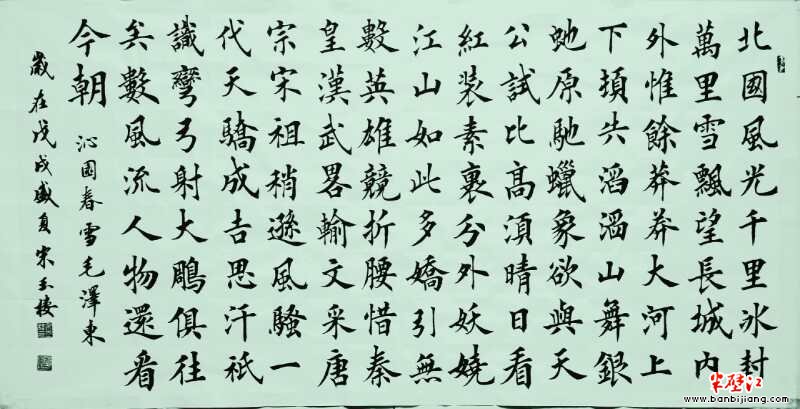 北國風光千里冰封
萬里雪飄望長城内
外惟餘莽莽大河上
下頓失滔滔山舞銀
虵原馳蠟象欲與天
公試比高須晴日看
紅裝素裹分外妖嬈
江山如此多嬌引無
數英雄競折腰惜秦
皇漢武畧輸文采唐
宗宋祖稍遜風騷一
代天驕成吉思汗祇
識彎弓射大鵰俱往
矣數風流人物還看
今朝
沁園春雪毛澤東
歲在戊戌盛夏宋玉
半壁江
www.banbijiang.com